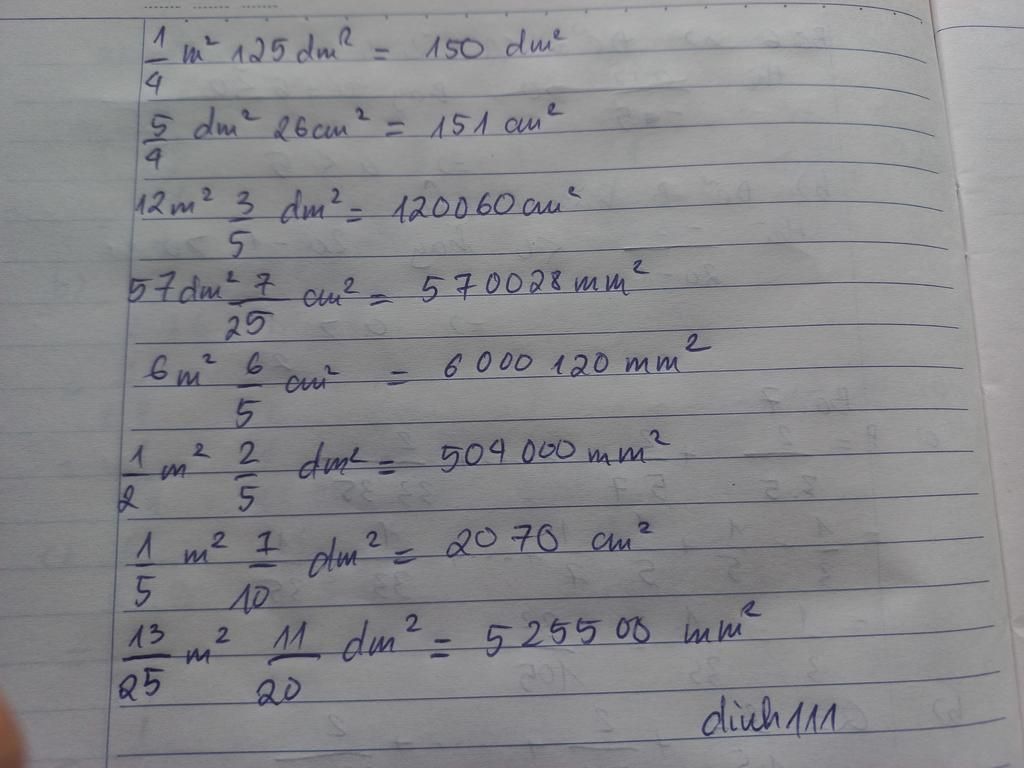 1/4 m² 125 dm² = 150 dm²
5/4 dm² 26 cm² = 151 cm²
12m² 3/5 dm² = 120060 cm²
57dm² 7/25 cm² = 570028 mm²
6m² 6/5 cm² = 6000 120 mm²
1/2 m² 2/5 dm² = 504 000 mm²
1/5 m² 7/10 dm² = 2070 cm²
13/25 m² 11/20 dm² = 525500 mm²
dinh111